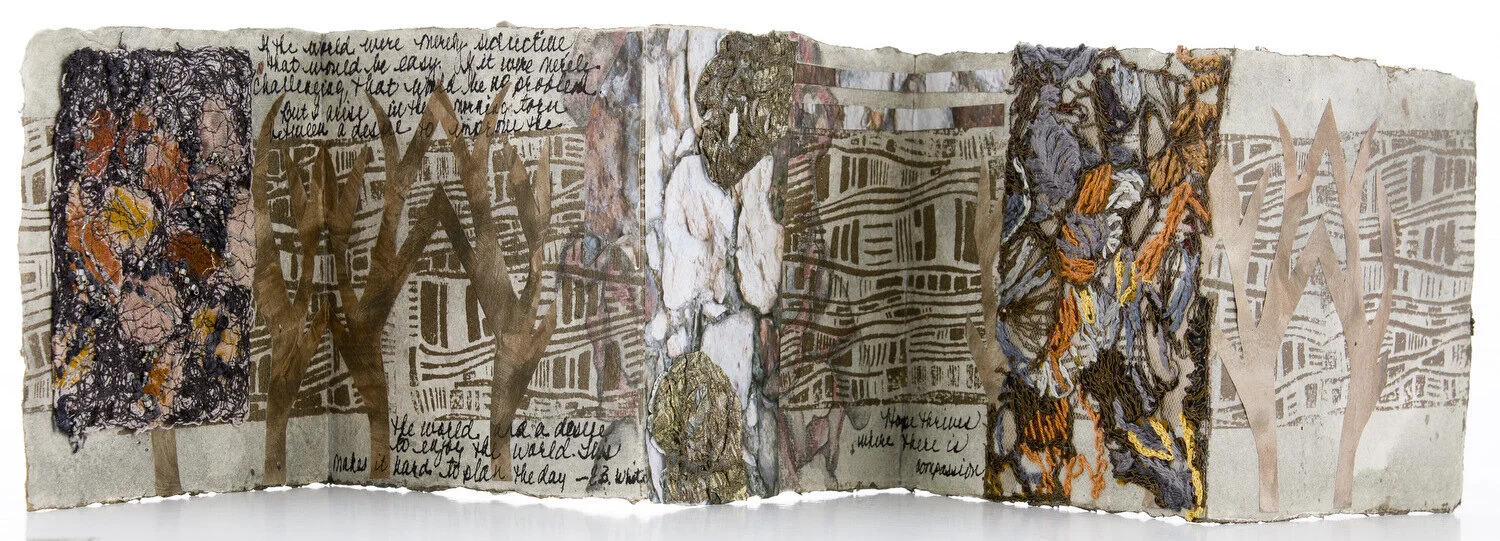 If the world were merely seductive
that would be easy. If it were merely
challenging, that would be no problem.
But I arise in the morning torn
between a desire to improve the
the world and a desire
to enjoy the world. This
makes it hard to plan the day — E.B. White
Hope thrives
where there is
compassion